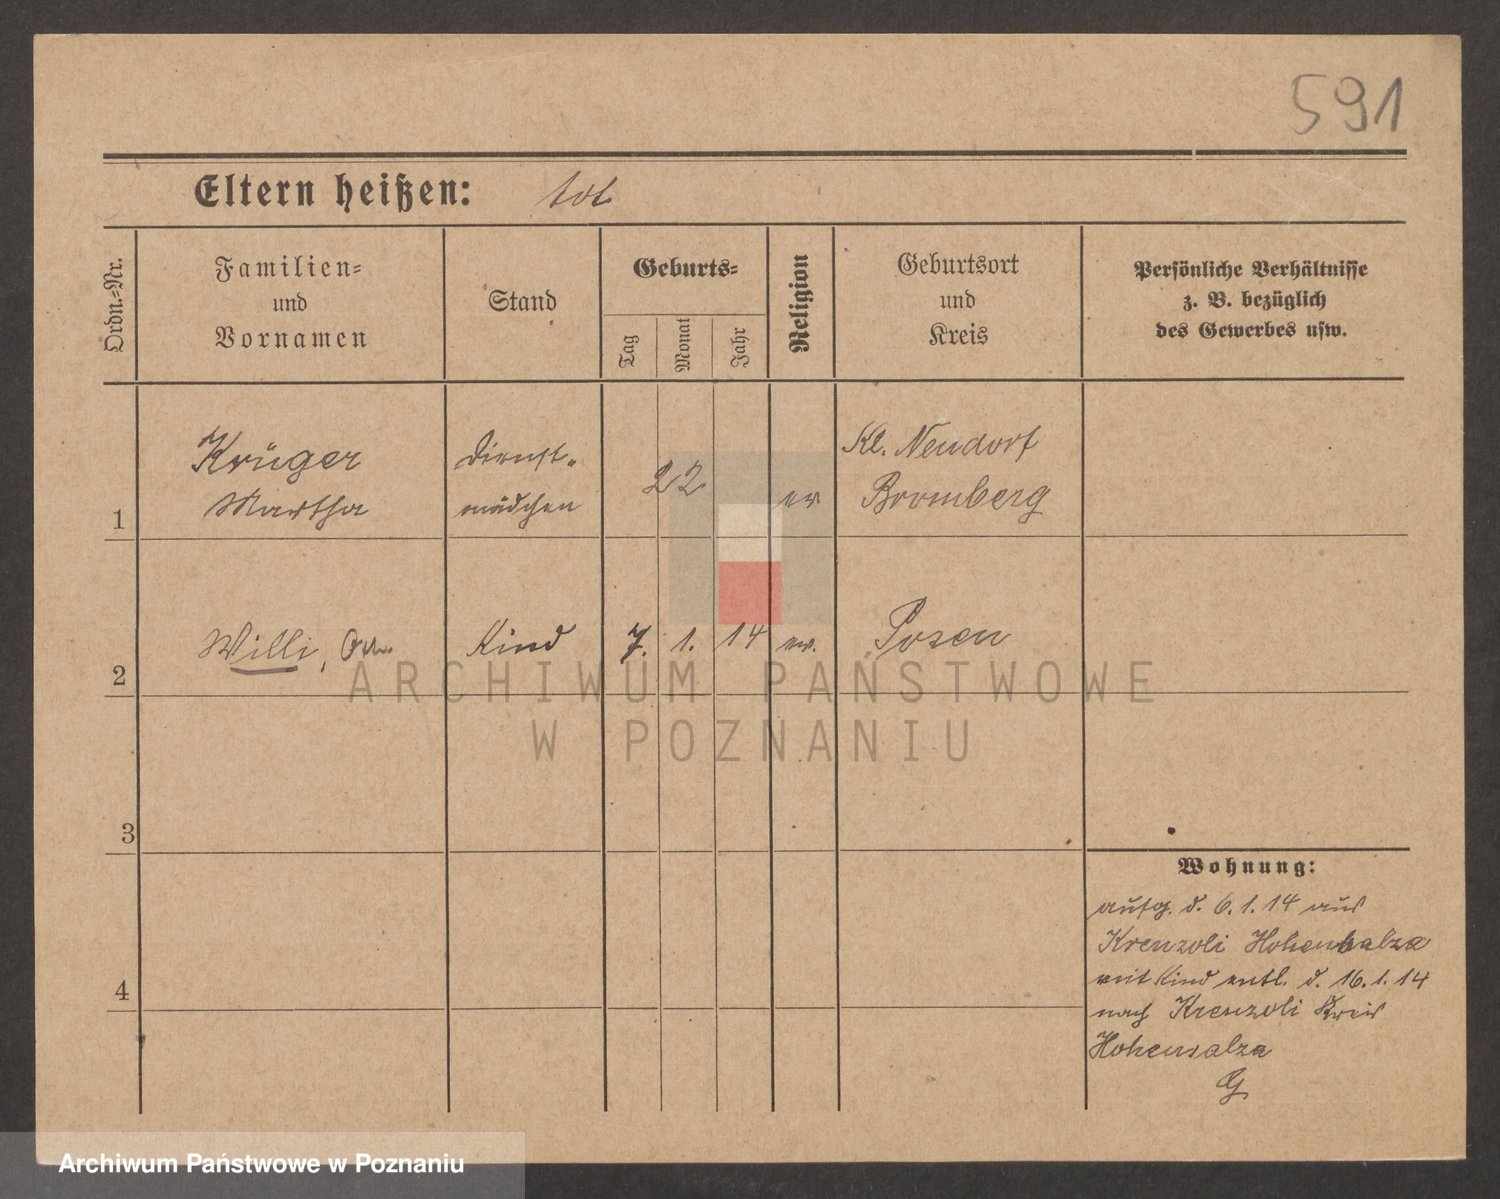 591
Eltern heißen: tot
Ordn.=Nr.
Familien=
und
Vornamen
Stand
Geburts=
Tag
Monat
Jahr
Religion
Geburtsort
und
Kreis
Persönliche Verhältnisse
z. B. bezüglich
des Gewerbes usw.
1
Krüger
Martha
Dienst„
mädchen
22
ev
Kl. Neudorf
Bromberg
2
Willi,
Kind
7. 1. 14
ev.
Posen
3
4
Wohnung:
aufg. d. 6.1.14 aus
Krenzoli Hohensalza
mit Kind entl. d. 16.1.14
nach Krenzoli Kreis
Hohensalza
G
ARCHIWUM PAŃSTWOWE
W POZNANIU
Archiwum Państwowe w Poznaniu